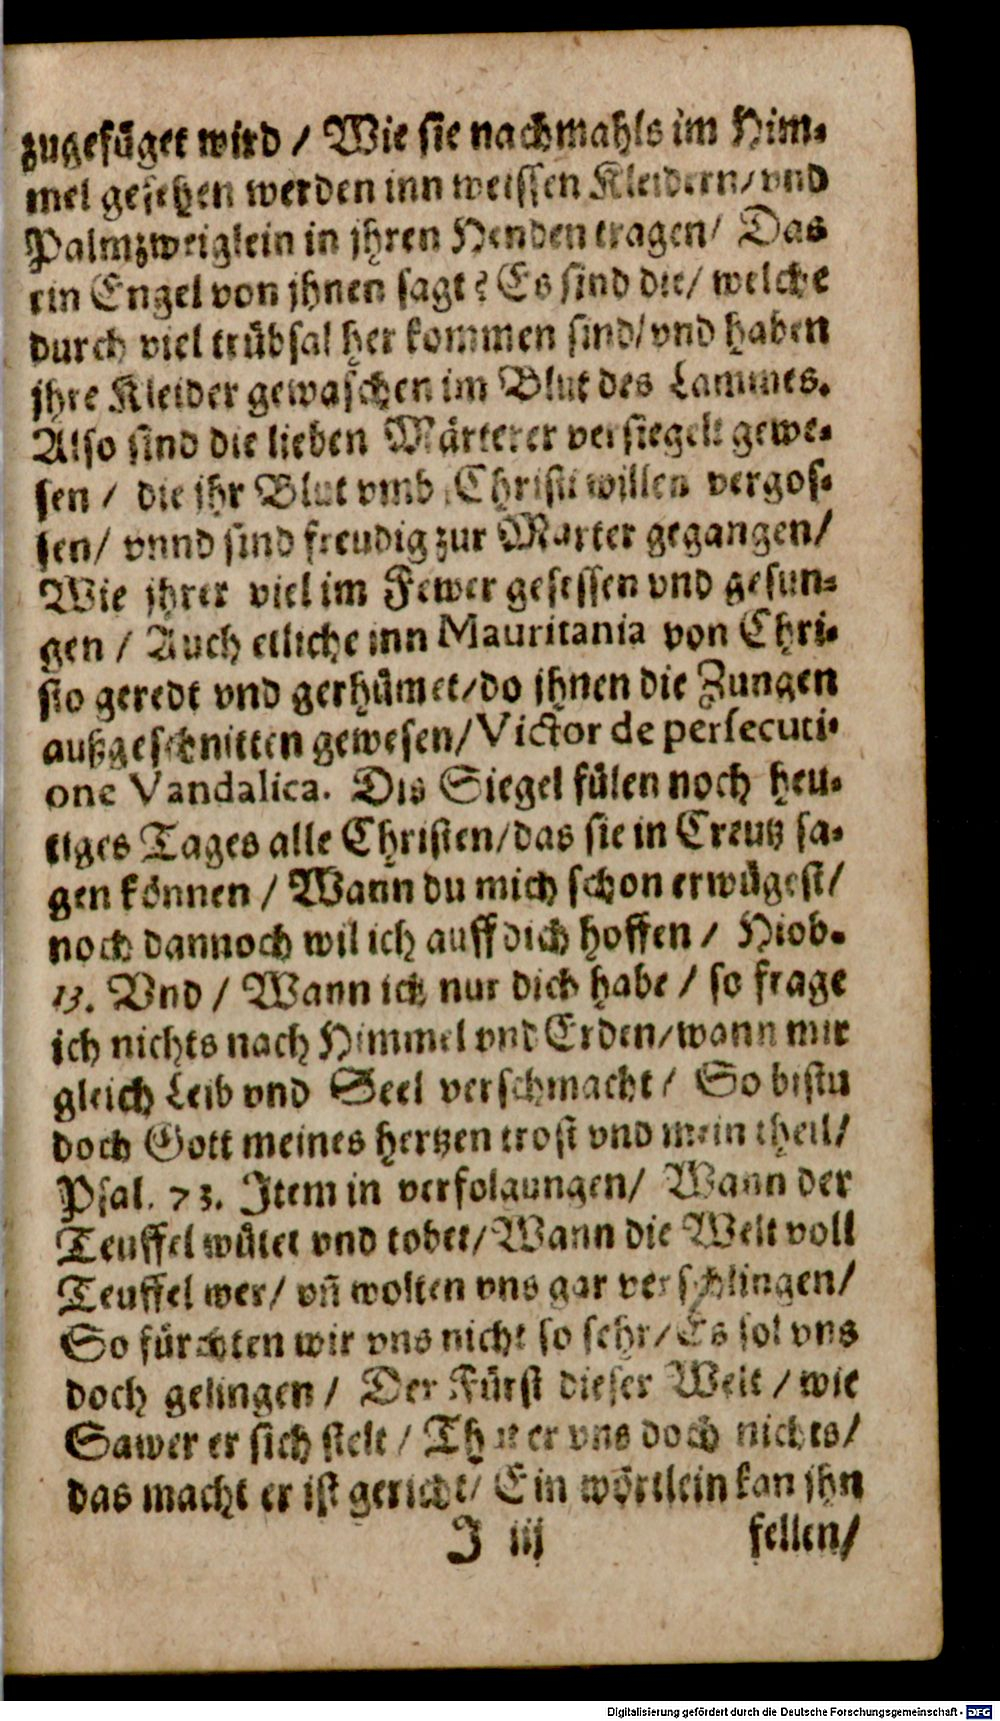 zugefüget wird / Wie sie nachmahls im Him-
mel gesehen werden inn weissen Kleidern/ vnd
Palmzweiglein in jhren Henden tragen/ Das
ein Engel von jhnen sagt? Es sind die/ welche
durch viel trübsal her kommen sind/ vnd haben
jhre Kleider gewaschen im Blut des Lammes.
Also sind die lieben Märterer versiegelt gewe-
sen / die jhr Blut vmb Christi willen vergos-
sen/ vnnd sind freudig zur Marter gegangen/
Wie jhrer viel im Fewer gesessen vnd gesun-
gen / Auch etliche inn Mauritania von Chri-
sto geredt vnd gerhümet/ do jhnen die Zungen
außgeschnitten gewesen/ Victor de persecuti-
one Vandalica. Dis Siegel fülen noch heu-
tiges Tages alle Christen/ das sie in Creutz sa-
gen können / Wann du mich schon erwügest/
noch dannoch wil ich auff dich hoffen / Hiob.
13. Vnd / Wann ich nur dich habe / so frage
ich nichts nach Himmel vnd Erden/ wann mir
gleich Leib vnd Seel verschmacht / So bistu
doch Gott meines hertzen trost vnd mein theil/
Psal. 73. Item in verfolgungen/ Wann der
Teuffel wütet vnd tobet/ Wann die Welt voll
Teuffel wer/ vñ wolten vns gar verschlingen/
So fürchten wir vns nicht so sehr/ Es sol vns
doch gelingen / Der Fürst dieser Welt / wie
Sawer er sich stelt / Thut er vns doch nichts/
das macht er ist gericht/ Ein wörtlein kan jhn
J iij fellen/
Digitalisierung gefördert durch die Deutsche Forschungsgemeinschaft - DFG